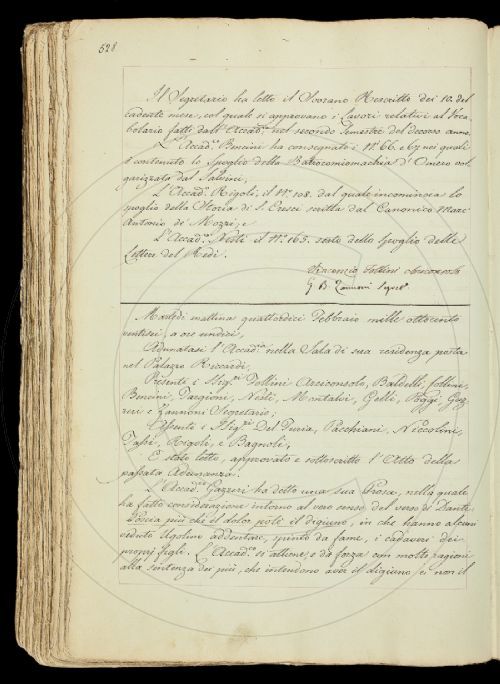 528
Il Segretario ha letto il Sovrano Rescritto dei 10. del
cadente mese, col quale si approvano i lavori relativi al Voca-
bolario fatti dall'Accad.ia nel secondo Semestre del decorso anno.
L'Accad.o Bencini ha consegnato i N.i 66. e 67 nei quali
è contenuto lo spoglio della Batrocomiomachia d'Omero vol-
garizzata dal Salvini,
L'Accad.o Rigoli; il N.o 108. dal quale incomincia lo
spoglio della Storia di S. Eresi scritta dal Canonico Marc'
Antonio de' Mozzi, e
L'Accad.o Nesti il N.o 165. sesto dello Spoglio delle
Lettere del Redi.
Vincenzio Follini Arciconsolo
G B Zannoni Segret.o
Martedì mattina quattordici Febbraio mille ottocento
ventisei, a ore undici,
Adunatasi l'Accad.ia nella Sala di sua residenza posta
nel Palazzo Riccardi,
Presenti i Sig.ri Follini Arciconsolo, Baldelli, Collini,
Bencini, Targioni, Nesti, Montalvi, Gelli, Poggi Gaz-
zeri e Zannoni Segretario;
Assenti i Sig.ri Del Furia, Pacchiani, Niccolini,
Capei, Rigoli, e Bagnoli,
È stato letto, approvato e sottoscritto l'Atto della
passata Adunanza.
L'Accad.o Gazzeri ha detto una sua Prosa, nella quale
ha fatto considerazione intorno al vero senso del verso di Dante
Poscia più che il dolor potè il digiuno, in che hanno alcuni
veduto Ugolino addentare, spinto da fame, i cadaveri dei
proprj figli. L'Accad.o si attiene, e dà forza con molte ragioni
alla sentenza dei più, che intendono aver il digiuno, e non il